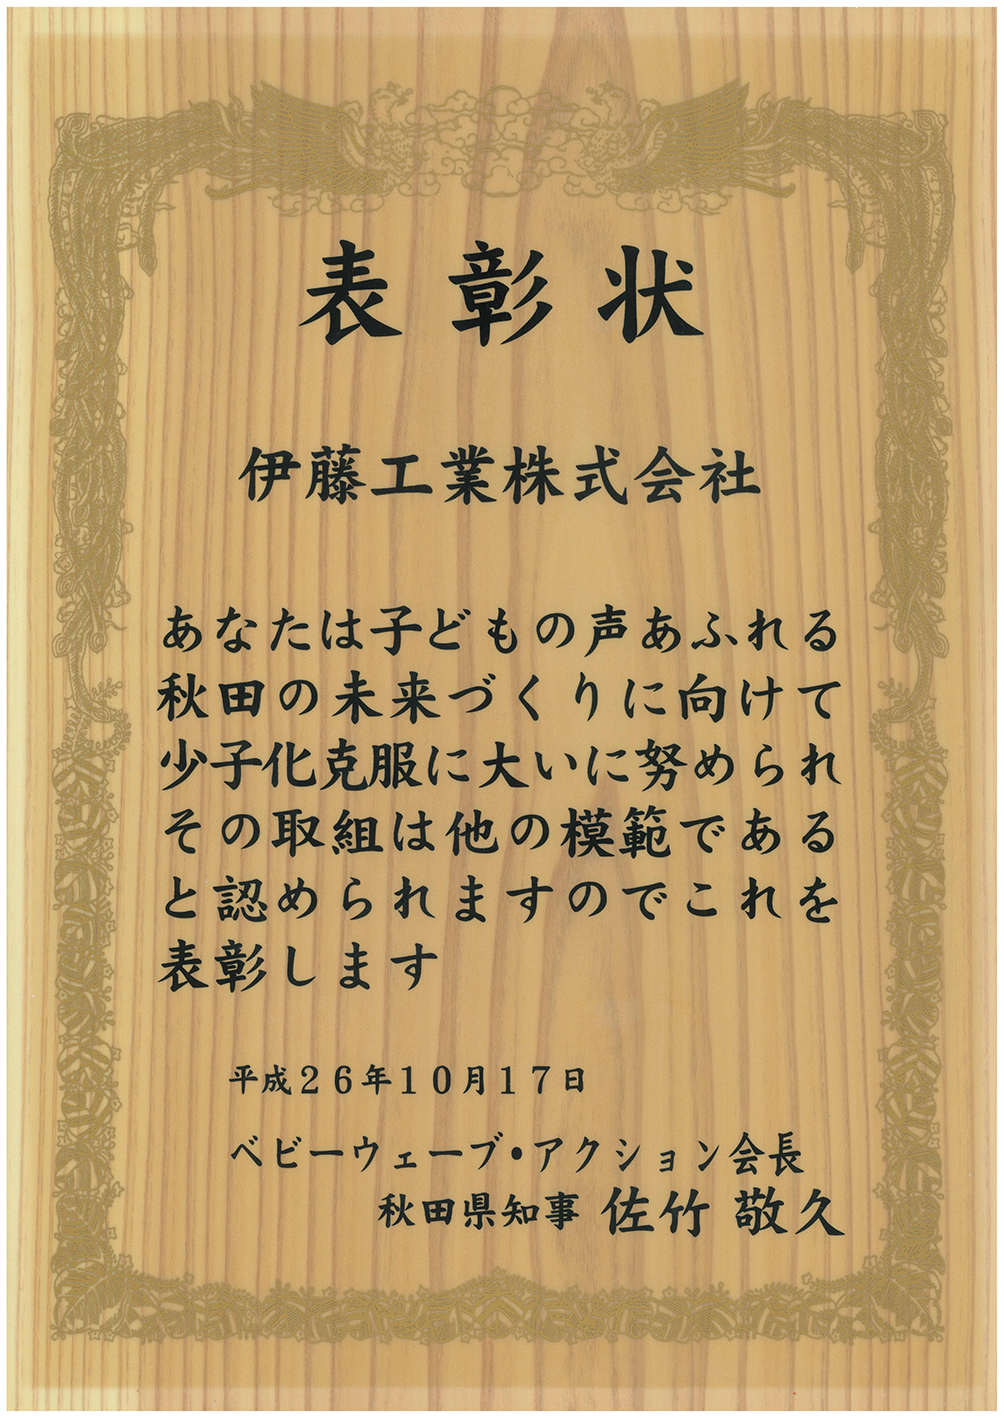 表彰状
伊藤工業株式会社
あなたは子どもの声あふれる
秋田の未来づくりに向けて
少子化克服に大いに努められ
その取組は他の模範である
と認められますのでこれを
表彰します
平成２６年１０月１７日
ベビーウェーブ・アクション会長
秋田県知事 佐竹 敬久